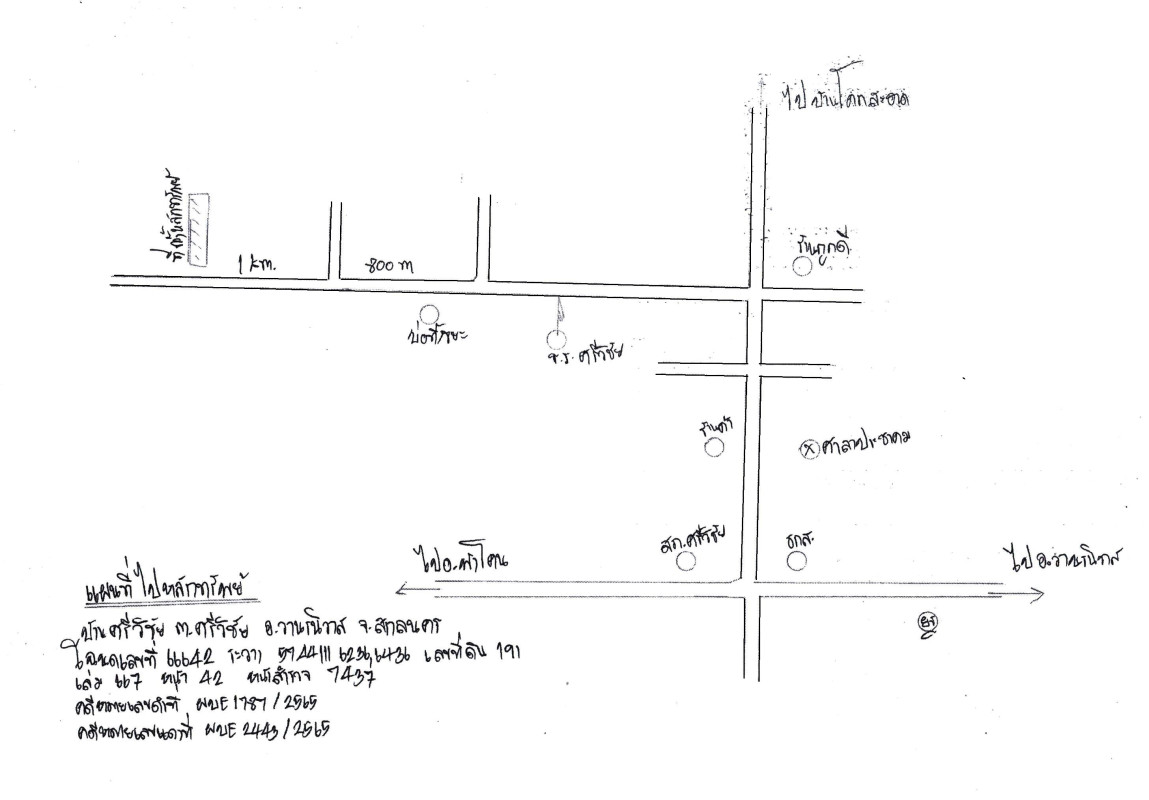 ไปบ้านโคกสะอาด
ที่ตั้งหลักทรัพย์
ร้านถูกดี
1 km.
800 m
บ่อทิ้งขยะ
ร.ร. ศรีวิชัย
ร้านค้า
ศาลาประชาคม
สภ.ศรีวิชัย
ธกส.
ไป อ.พังโคน
ไป อ.วานรนิวาส
แผนที่ไปหลักทรัพย์
บ้านศรีวิชัย ต.ศรีวิชัย อ.วานรนิวาส จ.สกลนคร
โฉนดเลขที่ 66642 ระวาง 5944III 6236,6436 เลขที่ดิน 191
เล่ม 667 หน้า 42 หน้าสำรวจ 7437
คดีหมายเลขดำที่ ผบE 1787/2565
คดีหมายเลขแดงที่ ผบE 2443/2565